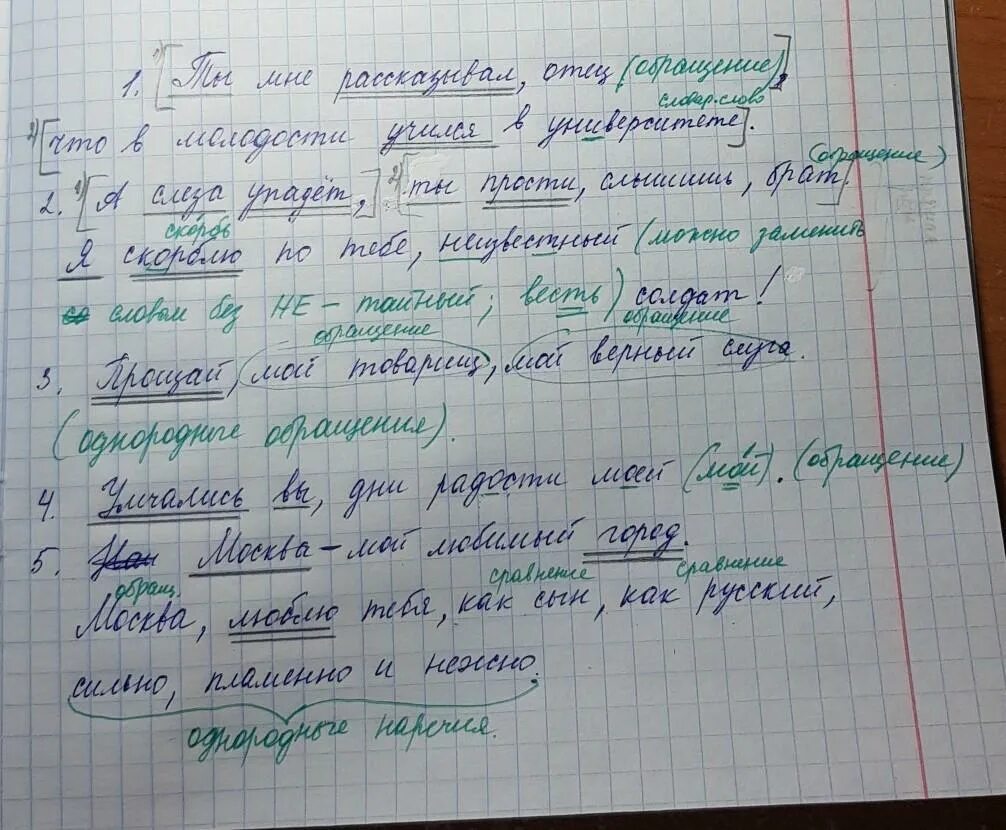 1. 1) [Ты мне рассказывал, отец (обращение)],
словар. слово
2) [что в молодости учился в университете].
(обращение)
2. 1) [А слеза упадёт,] 2) [ты прости, слышишь, брат].
скорбь
Я скорблю по тебе, неизвестный (можно заменить
со словом без НЕ – тайный; весть) солдат!
обращение обращение
3. Прощай, мой товарищ, мой верный слуга.
(однородные обращения).
4. Умчались вы, дни радости моей (мой). (обращение)
5. Нан Москва – мой любимый город.
обращ. сравнение сравнение
Москва, люблю тебя, как сын, как русский,
сильно, пламенно и нежно.
однородные наречия.